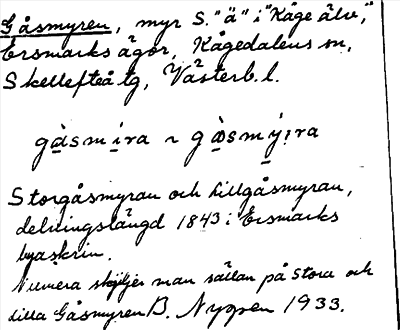 Gåsmyren, myr S. "ä" i "Kåge älv,"
Ersmarks ägor, Kågedalens sn,
Skellefteå tg, Västerb. l.
gåsmira ~ gåsmyra
Storgåsmyran och Lillgåsmyran,
delningslängd 1843 i Ersmarks
byaskrin.
Numera skiljer man sällan på stora och
lilla Gåsmyren B. Nygren 1933.